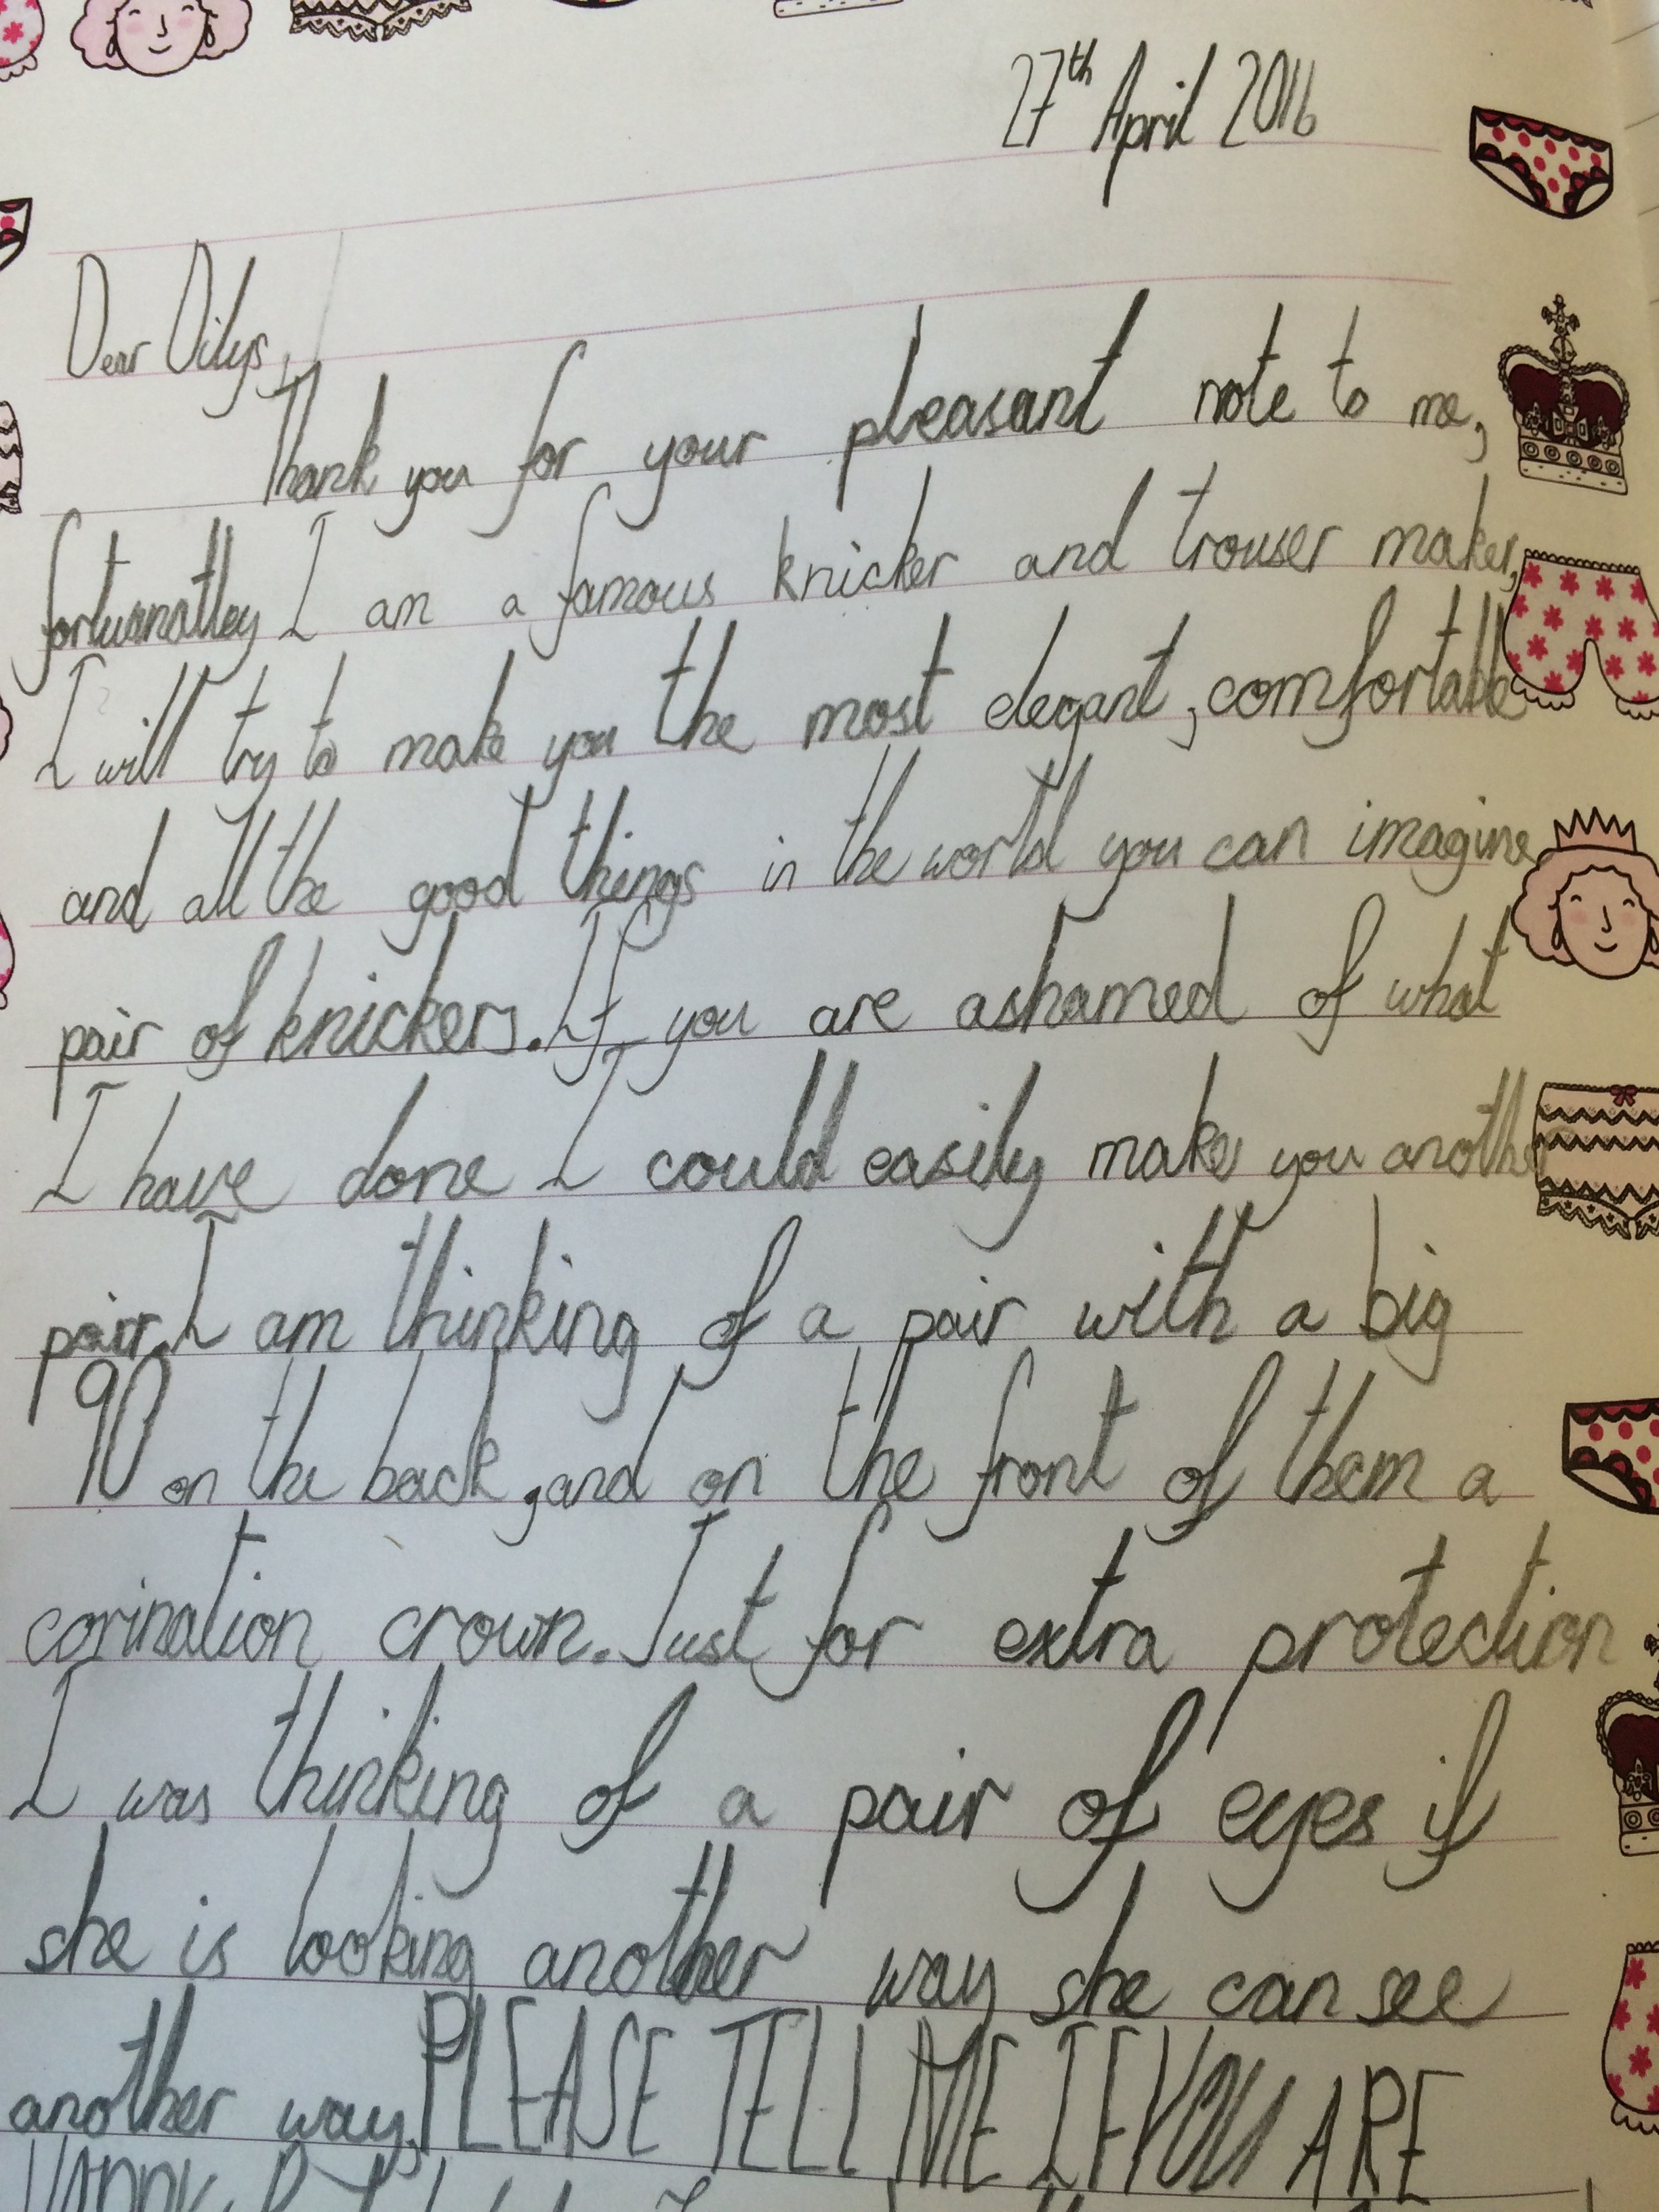 27th April 2016
Dear Dilys,
Thank you for your pleasant note to me,
fortuanatley I am a famous knicker and trouser maker,
I will try to make you the most elegant, comfortable
and all the good things in the world you can imagine
pair of knickers. If you are ashamed of what
I have done I could easily make you another
pair. I am thinking of a pair with a big
90 on the back, and on the front of them a
corination crown. Just for extra protection
I was thinking of a pair of eyes if
she is looking another way she can see
another way. PLEASE TELL ME IF YOU ARE
HAPPY.